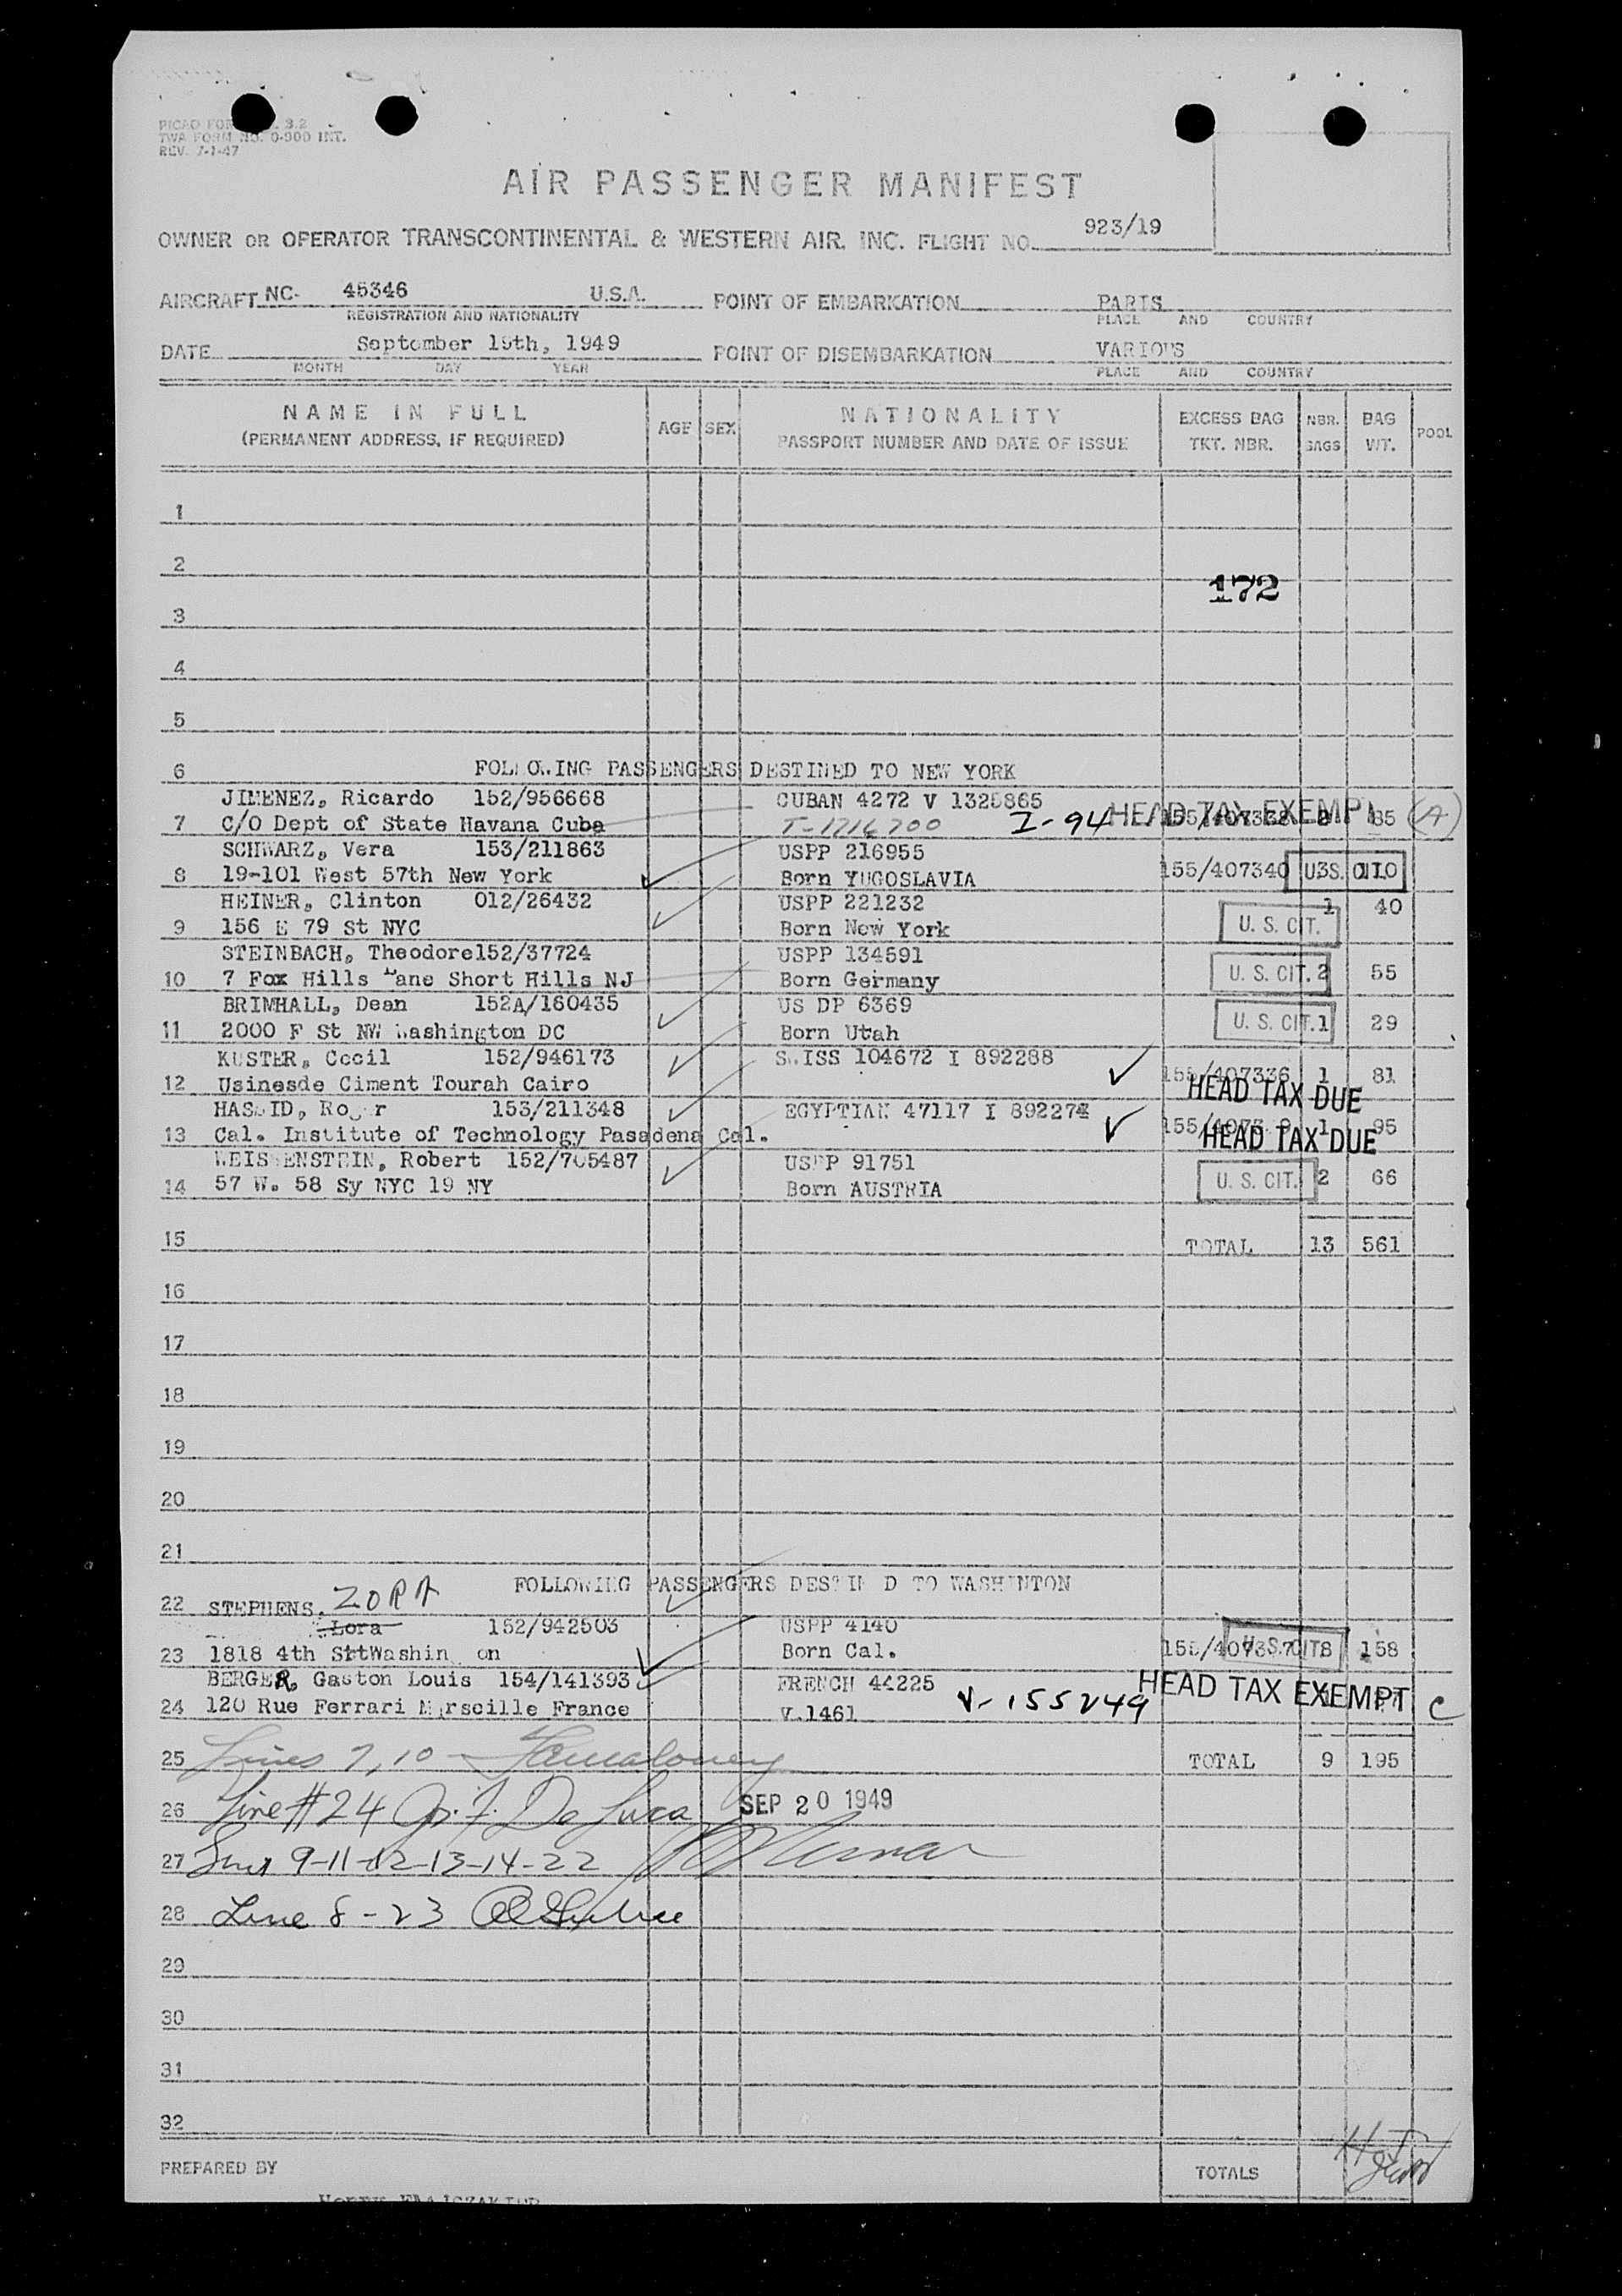 REV. 7-1-47
AIR PASSENGER MANIFEST
OWNER OR OPERATOR TRANSCONTINENTAL & WESTERN AIR. INC. FLIGHT NO. 923/19
AIRCRAFT NC- 45346 U.S.A. POINT OF EMBARKATION PARIS
REGISTRATION AND NATIONALITY PLACE AND COUNTRY
DATE September 19th, 1949 POINT OF DISEMBARKATION VARIOUS
MONTH DAY YEAR PLACE AND COUNTRY
NAME IN FULL AGE SEX NATIONALITY EXCESS BAG NBR. BAG POOL
(PERMANENT ADDRESS, IF REQUIRED) PASSPORT NUMBER AND DATE OF ISSUE TKT. NBR. BAGS WT.
1
2
172
3
4
5
6 FOLLOWING PASSENGERS DESTINED TO NEW YORK
JIMENEZ, Ricardo 152/956668 CUBAN 4272 V 1325865
7 C/O Dept of State Havana Cuba T-1216700 I-94 HEAD TAX EXEMPT 85 (A)
SCHWARZ, Vera 153/211863 USPP 216955
8 19-101 West 57th New York Born YUGOSLAVIA 155/407340 U.S. CIT. 3 110
HEINER, Clinton 012/26432 USPP 221232 1 40
9 156 E 79 St NYC Born New York U. S. CIT.
STEINBACH, Theodore152/37724 USPP 134591
10 7 Fox Hills Lane Short Hills NJ Born Germany U. S. CIT. 2 55
BRIMHALL, Dean 152A/160435 US DP 6369
11 2000 F St NW Washington DC Born Utah U. S. CIT. 1 29
KUSTER, Cecil 152/946173 SWISS 104672 I 892288
12 Usinesde Ciment Tourah Cairo 155/407336 1 81
HEAD TAX DUE
HASSID, Roger 153/211348 EGYPTIAN 47117 I 892274
13 Cal. Institute of Technology Pasadena Cal. 1 95
HEAD TAX DUE
WEISSENSTEIN, Robert 152/705487 USPP 91751
14 57 W. 58 Sy NYC 19 NY Born AUSTRIA U. S. CIT. 2 66
15 TOTAL 13 561
16
17
18
19
20
21
FOLLOWING PASSENGERS DESTINED TO WASHINTON
22 STEPHENS, ZORA
Lora 152/942503 USPP 4140
23 1818 4th St Washin on Born Cal. U. S. CIT. 8 158
BERGER, Gaston Louis 154/141393 FRENCH 44225 HEAD TAX EXEMPT C
24 120 Rue Ferrari Marseille France V.1461 V-155249
25 Lines 7, 10 TOTAL 9 195
26 Line #24 G. F. De Luca SEP 20 1949
27 Lines 9-11-12-13-14-22
28 Line 8-23
29
30
31
32
PREPARED BY TOTALS